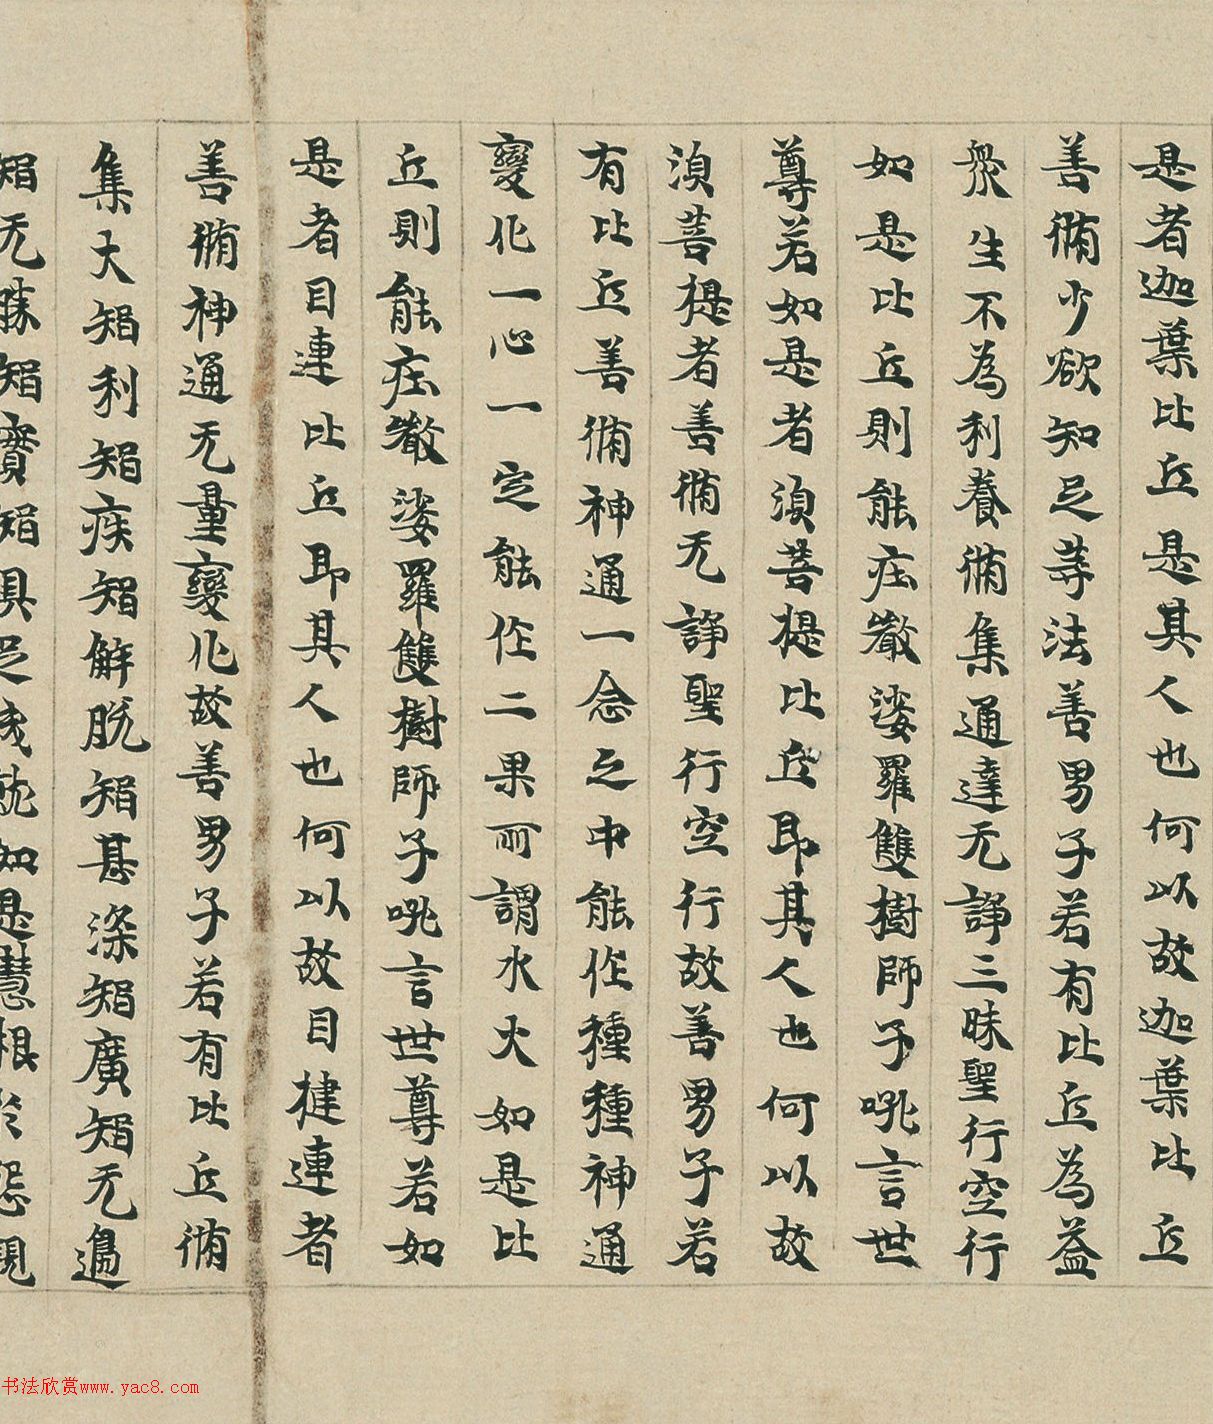 是者迦葉比丘是其人也何以故迦葉比丘
善脩少欲知足等法善男子若有比丘為益
衆生不為利養脩集通達无諍三昧聖行空行
如是比丘則能庄嚴娑羅雙樹師子吼言世
尊若如是者湏菩提比丘即其人也何以故
湏菩提者善脩无諍聖行空行故善男子若
有比丘善脩神通一念之中能作種種神通
變化一心一定能作二果所謂水火如是比
丘則能庄嚴娑羅雙樹師子吼言世尊若如
是者目連比丘即其人也何以故目揵連者
善脩神通无量變化故善男子若有比丘脩
集大智利智疾智解脫智甚深智廣智无邊
智无勝智實智具足成就如是慧根於怨親
书法欣赏www.yac8.com